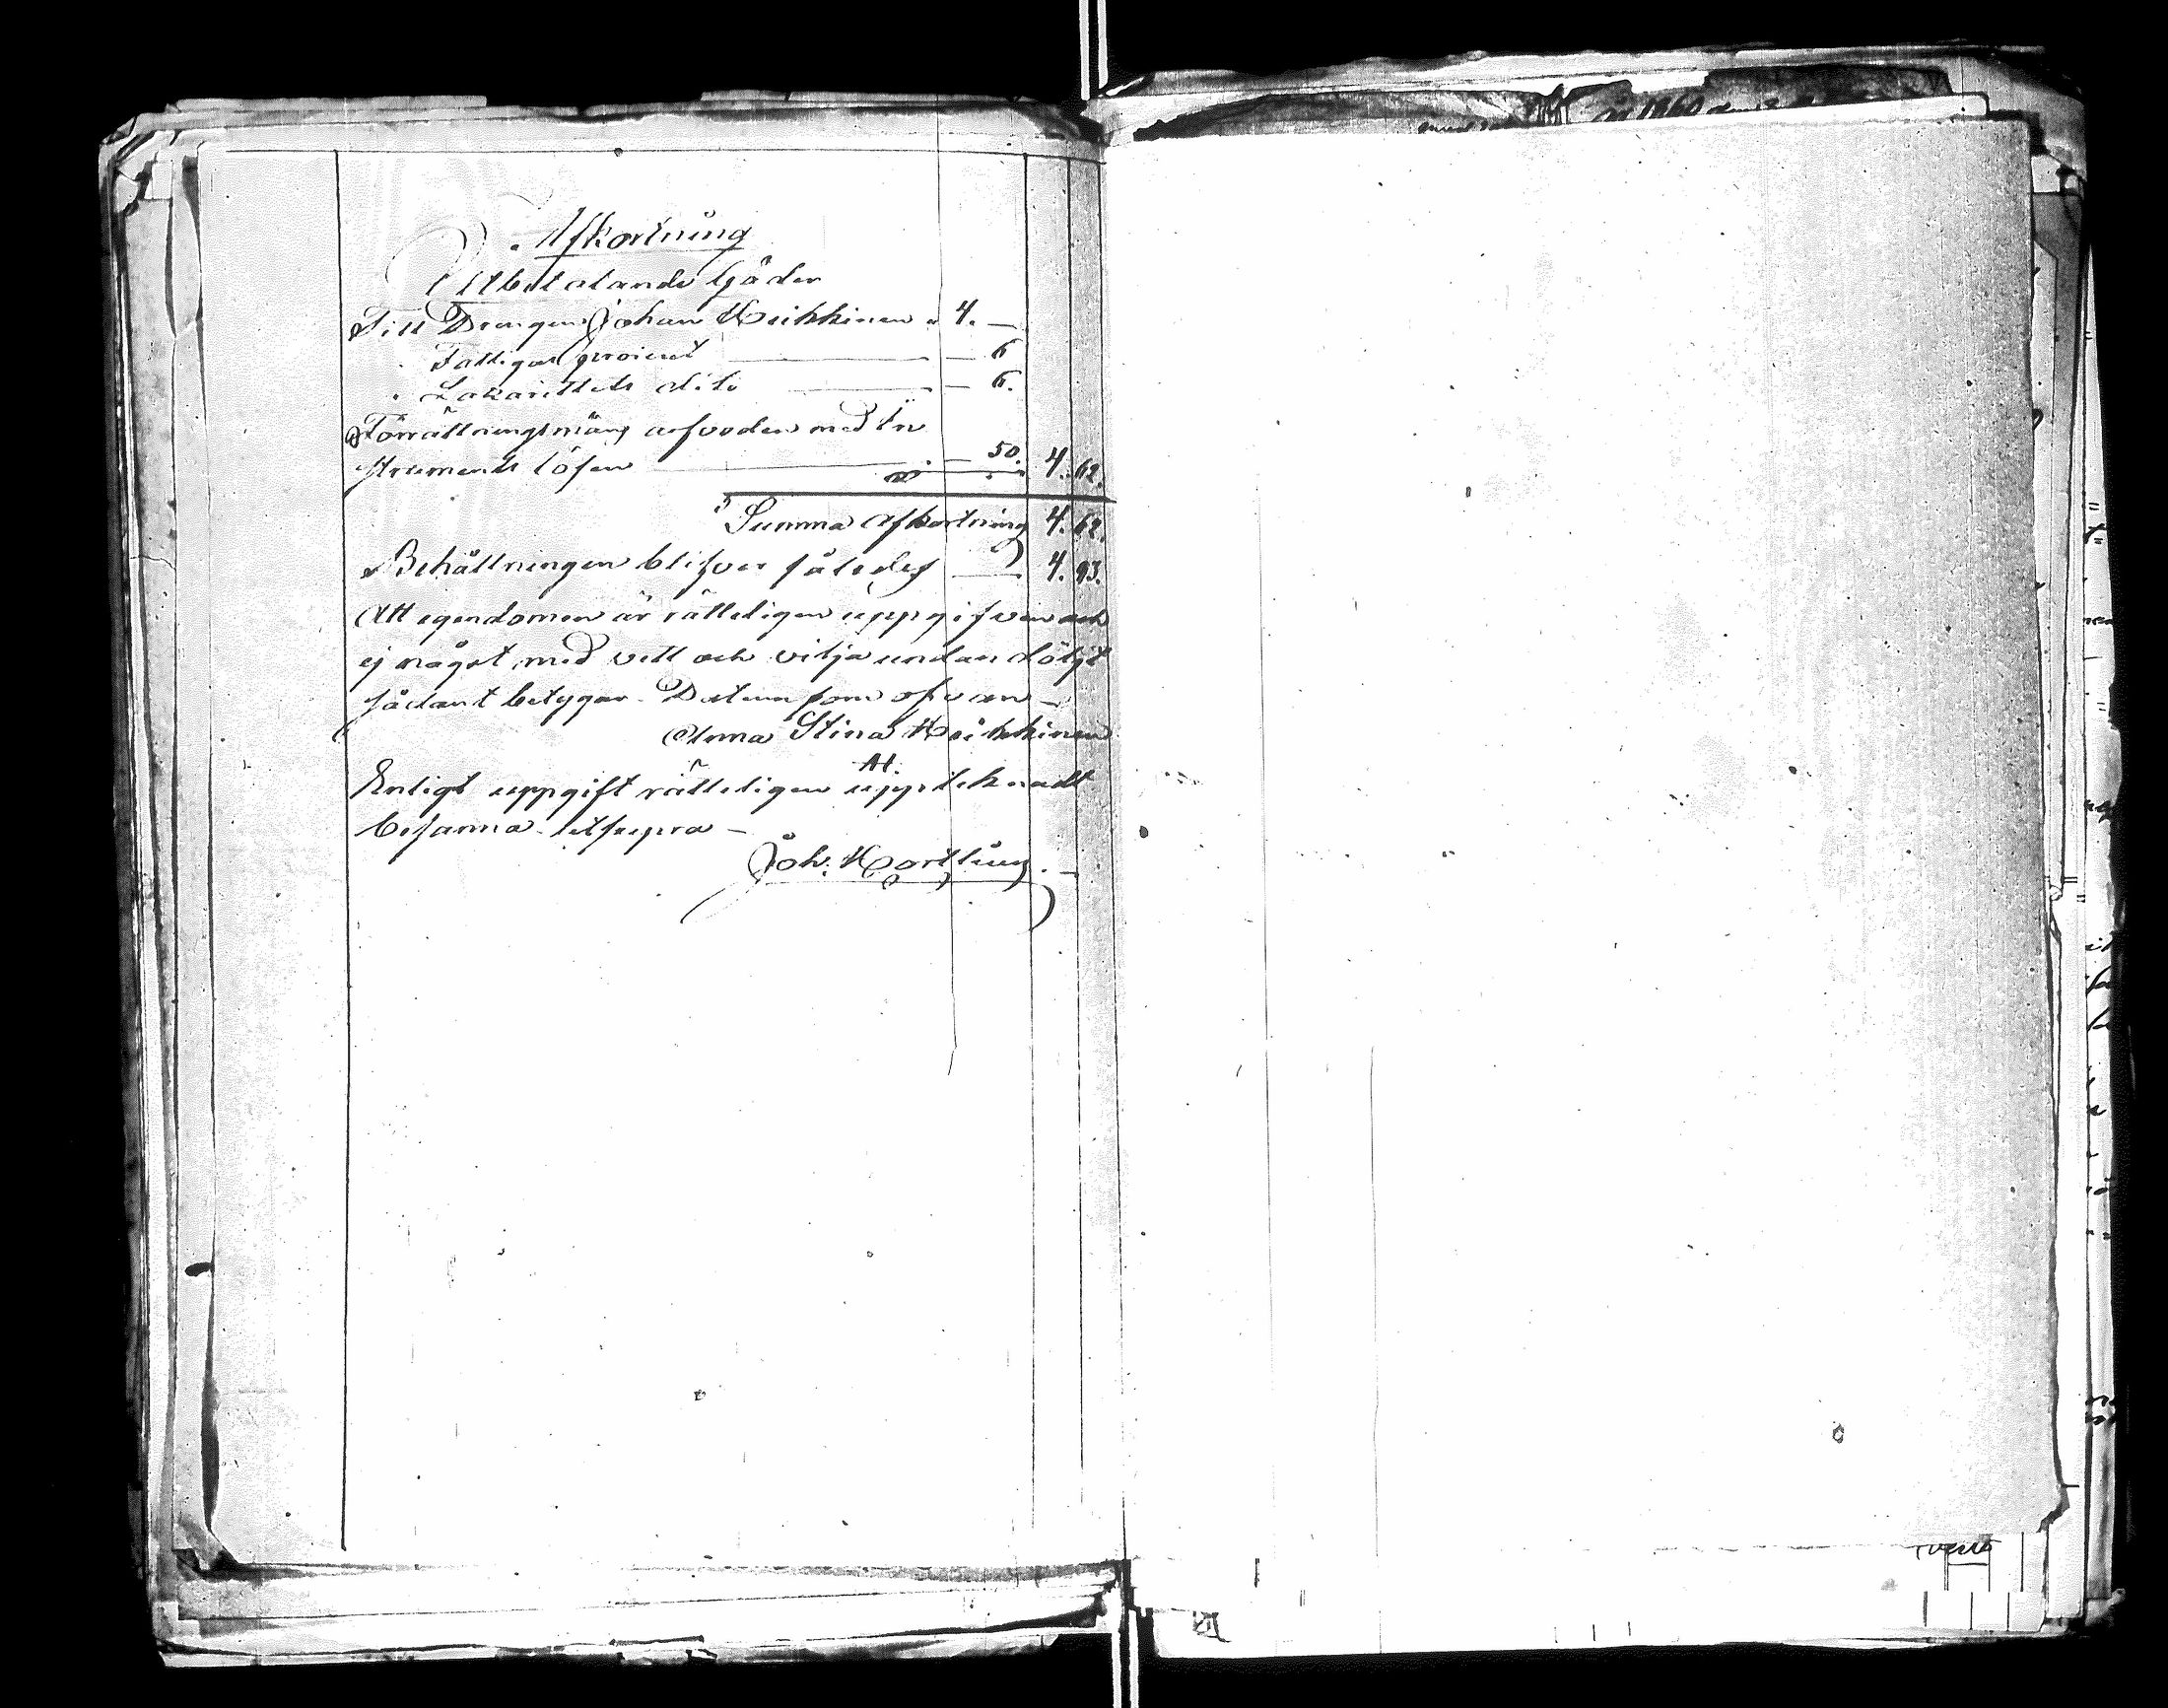 Afkortning
Utbetalande Gäder
Till Drengen Johan Heikkinen " 4. —
" Fattigas procent — — 6
" Lazarettets dito — — 6.
Förrättningsmans arfvoden med In
struments lösen — — 50. 4. 62.
Summa afkortning 4. 62.
Behållningen blifver således — 4. 93.
Att egendomen är rätteligen uppgifven och
ej något med vett och vilja undandöljt
sådant betygar. Datum som ofvan —
Anna Stina Heikkinen
Enligt uppgift rätteligen uppteknadt
besanna utsupra —
Joh: Hortling. —